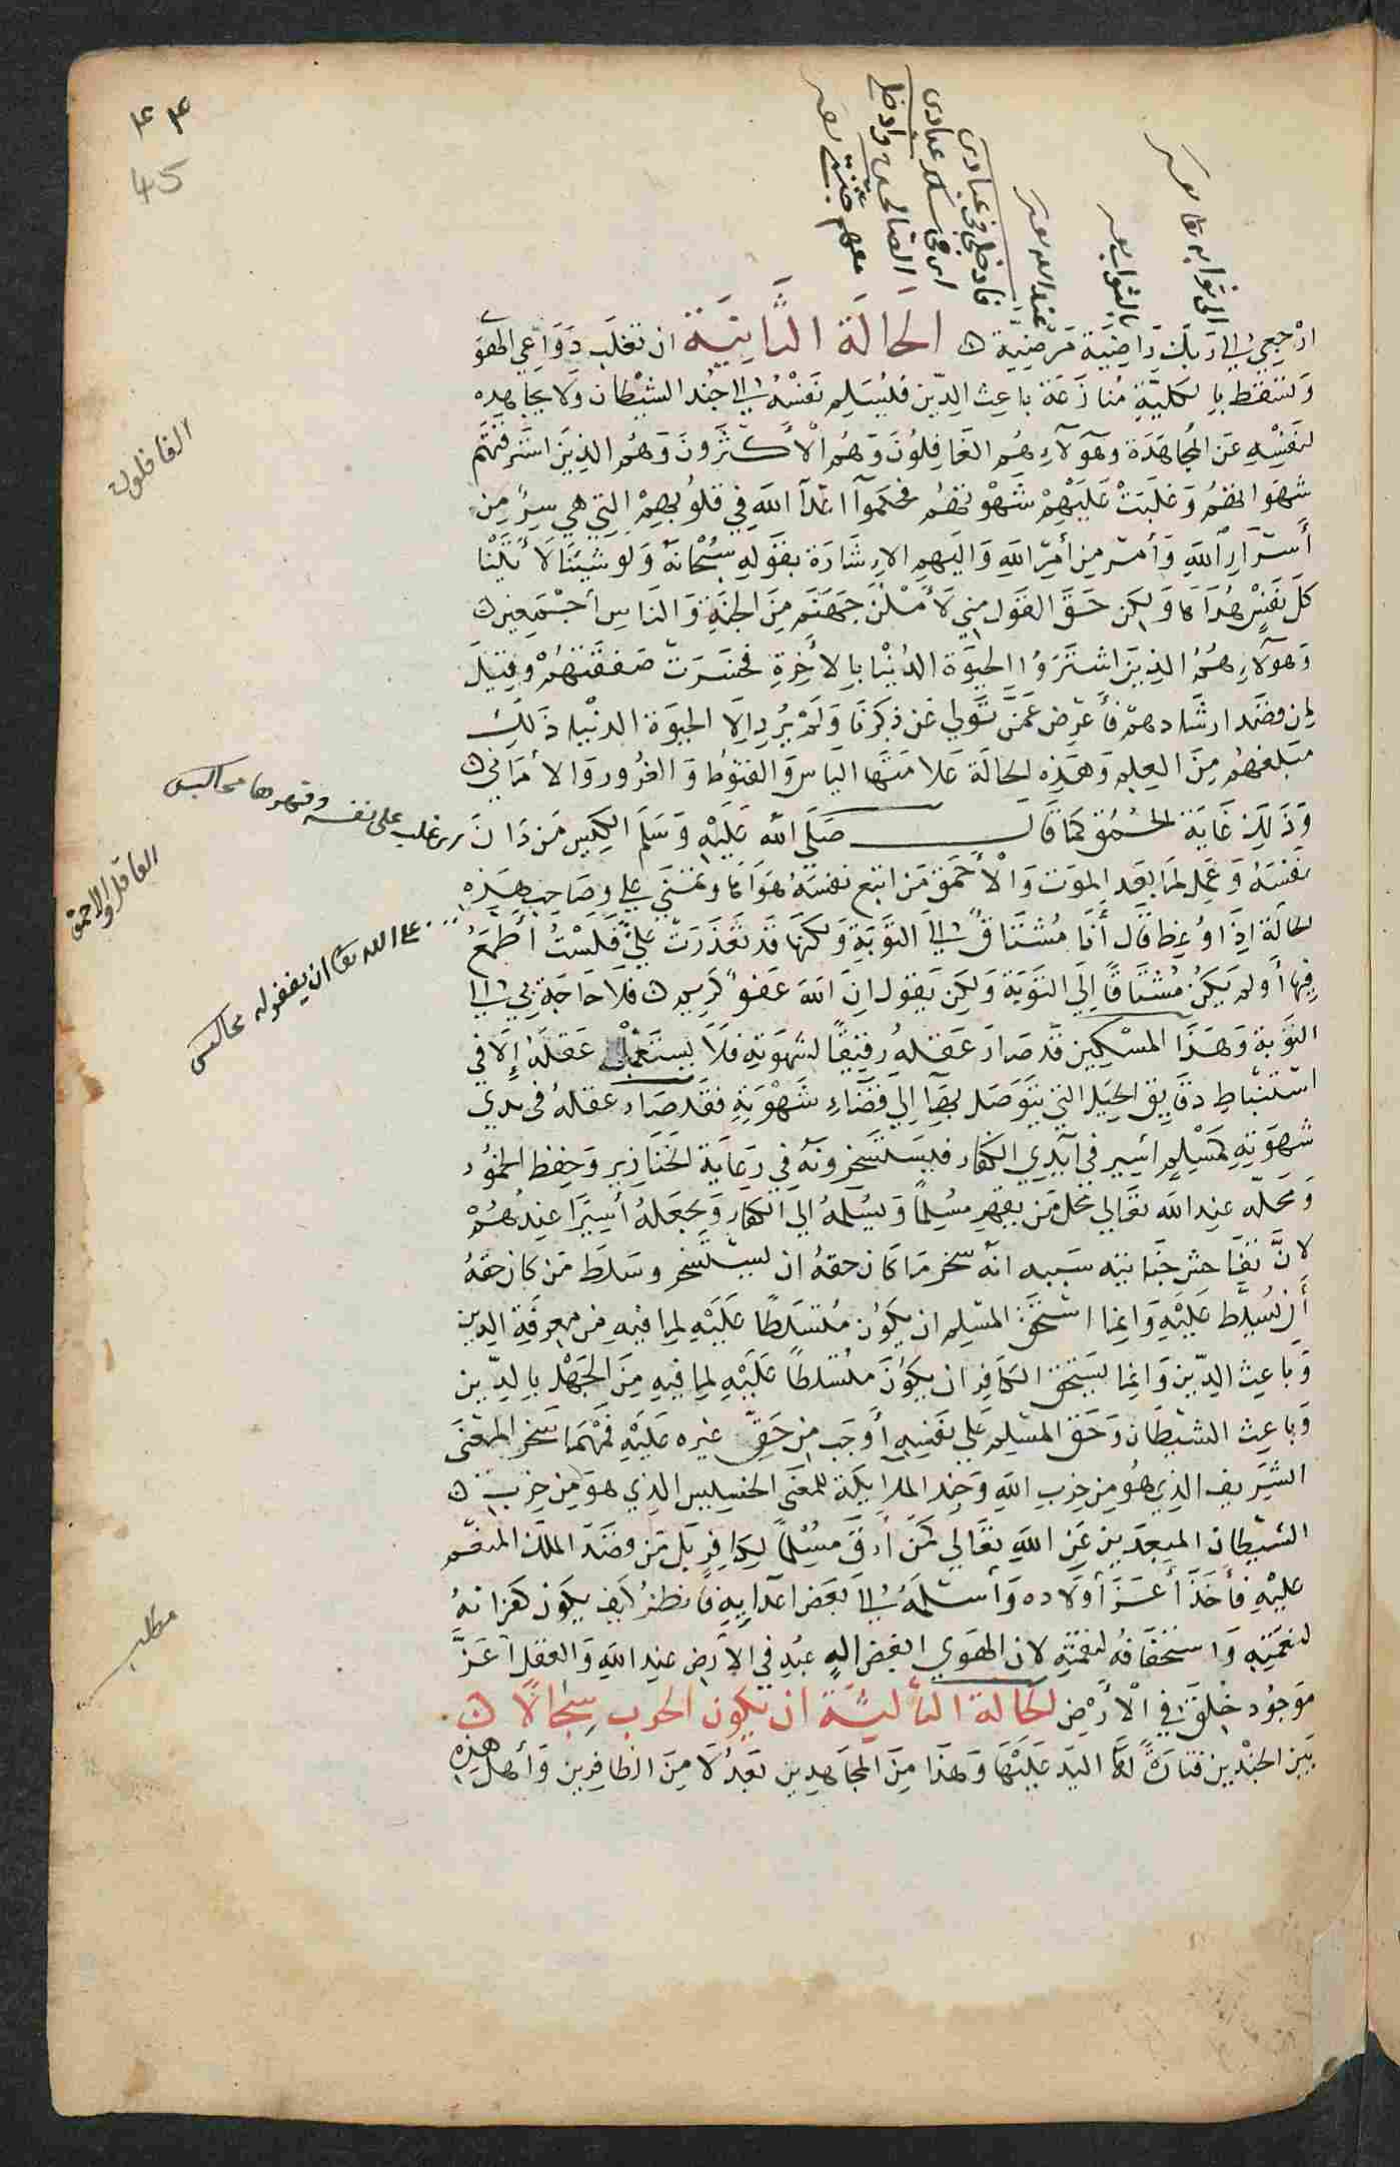 ٤٤
45
الى ثوابه
بالثواب
عند الله
فادخلي في عبادى
اى فى سلك عبادى
الصالحين وادخلي
معهم جنتي
ارْجِعِي إلى رَبِّكِ رَاضِيَةً مَرْضِيَّة الحَالَة الثَّانِيَة ان تغلب دَوَاعِي الهَوى
وتسقط بالكلية مُنازَعَة باعث الدِّين فيُسَلِم نفْسَهُ إلى جُند الشيْطان ولا يجاهد
لنفسِهِ عَن المُجاهَدَة وهَؤلَآءِ هُم الغَافِلُونَ وَهُم الأكثَرُونَ وَهُم الذين استرقتهم
شهواتهم وَغلَبَتْ عَلَيْهِمْ شَهْوتهُم فحكموا اعْدَآ اللهِ في قلوبهِمْ التي هي سِرٌّ مِن
أسْرَارِ اللهِ وَأمْر مِن أمْرِ اللهِ وَاليَهِم الإشَارَة بقَوْلِهِ سُبْحَانهُ وَلو شِئنَا لآتَيْنا
كلَّ نَفسٍ هُدَاهَا وَلكِن حَقَّ القَوْل مِني لأمْلَئَنَّ جَهَنَّم مِنَ الجِنَّةِ وَالناسِ أجْمَعِين
وَهَؤلآءِ هُمُ الذِينَ اشتَرَوُا الحَيوَة الدُنْيا بالآخِرَةِ فخسَرَت صَفقَتهُمْ وقِيلَ
لمن قصَد ارشَادهمْ فَأعْرِض عَمَّن تَوَلى عَن ذِكرِنَا وَلَمْ يُرِد إلّا الحيوَة الدنْيا ذَلِك
مَبلغهُم مِنَ العِلم وَهَذِه الحالَة عَلامَتها الياس وَالقنوُط وَالغرُور وَالأمَاني
وَذَلِكَ غَايَة الحُمْق كمَا قَال صَلَّى اللهُ عَلَيْهِ وَسَلمَ الكيِّس مَن دَانَ
نفْسَهُ وَعَمِلَ لِمَا بَعْد المَوْت وَالأحْمَق مَن اتبَع نفسَهُ هَوَاهَا وتمَنَّى على وصَاحِب هَذِه
الحالَة اذَا وُعِظ قَال أنَا مُشتَاقٌ إلى التَوْبَةِ وَلكِنهَا قد تَعَذَرَت عَليَّ فلَسْتُ أطْمَعُ
فِيهَا أولم يَكُن مُشتَاقًا إلى التَوْبَة وَلكِن يَقول انَّ اللهَ عَفوٌ كَرِيم فَلا حَاجَة بي إلى
التَوْبة وَهَذَا المسْكِين قد صَارَ عَقلهُ رقيقًا لشَهْوتِه فلا يَستَعْمِل عَقلهُ إلّا في
اسْتنباطِ دَقَايِق الحِيَل التي يَتَوَصَل بهَا إلى قضَاءِ شَهْوَتِهِ فَقَد صَارَ عَقلهُ في يدي
شهوَتِهِ كمُسْلِم اسير في أيْدِي الكفار فيَسْتسخِرُونهُ في رِعَايَة الخَنازِير وَحِفظ الخمُور
وَمَحلّه عِند اللهِ تعَالى محلّ مَن يقهر مسْلِمًا وَيُسْلِمُهُ إلى الكفارِ وَيَجعَلهُ أسِيرًا عِندَهُمْ
لانَّ تفاحش جنايته سَببه انّهُ سخر مَا كَان حقهُ ان لا يستَسخر وسَلّط مَن كان حقهُ
أن يُسَلّط عَليْهِ وَانما اسْتحَقَّ المسْلِم ان يكوُن مُتسَلطًا عَلَيْهِ لِما فيهِ مِن مَعرِفَة الدِين
وَبَاعِث الدِّين وَانما يَسْتحِق الكَافِر ان يكوُنَ مُتسَلطًا عَلَيْهِ لِمَا فيهِ مِنَ الجَهْل بالدِّين
وَباعِث الشيطَان وَحَق المسْلِم عَلى نفسِهِ أوْجَب مِن حَقِّ غيرِه عَلَيْهِ فمَهْمَا سَخر المعْنَى
الشريف الذِي هُوَ مِن حِزبِ اللهِ وَجُند المَلايكَة للمَعْنى الخسيس الذِي هوَ مِن حِزْب
الشيطَان المبعِدِين عَن اللهِ تعَالى كمَن أرَقَّ مُسْلِمًا لِكافِرٍ بَل مَن قصَدَ المَلك المنعِم
عَليْهِ فأخَذ أعَزَّ أوْلَاده وَأسْلمَهُ إلى بَعْضِ اعدَايِه فانظر كيفَ يكون كفرانهُ
لنعمَتِهِ وَاستحقاقهُ لنقمَتِهِ لان الهَوى ابغض الهٍ عُبِد في الارْض عِند اللهِ وَالعَقل أعَزُّ
مَوجُود خُلِقَ فِي الأرْض الحَالة الثالثة أن يكون الحرب سِجَالًا
بَين الجُنْدَين فتارَةً لهُ اليد عَلَيْهَا وَهَذا مِنَ المجَاهِدِين يُعَدُّ لا مِنَ الظافِرِين وَأهل هذِهِ
الغافلون
اى غلب على نفسه وقهرها مجالس
العاقل والاحمق
على الله تعالى ان يغفر له مجالس
مطلب